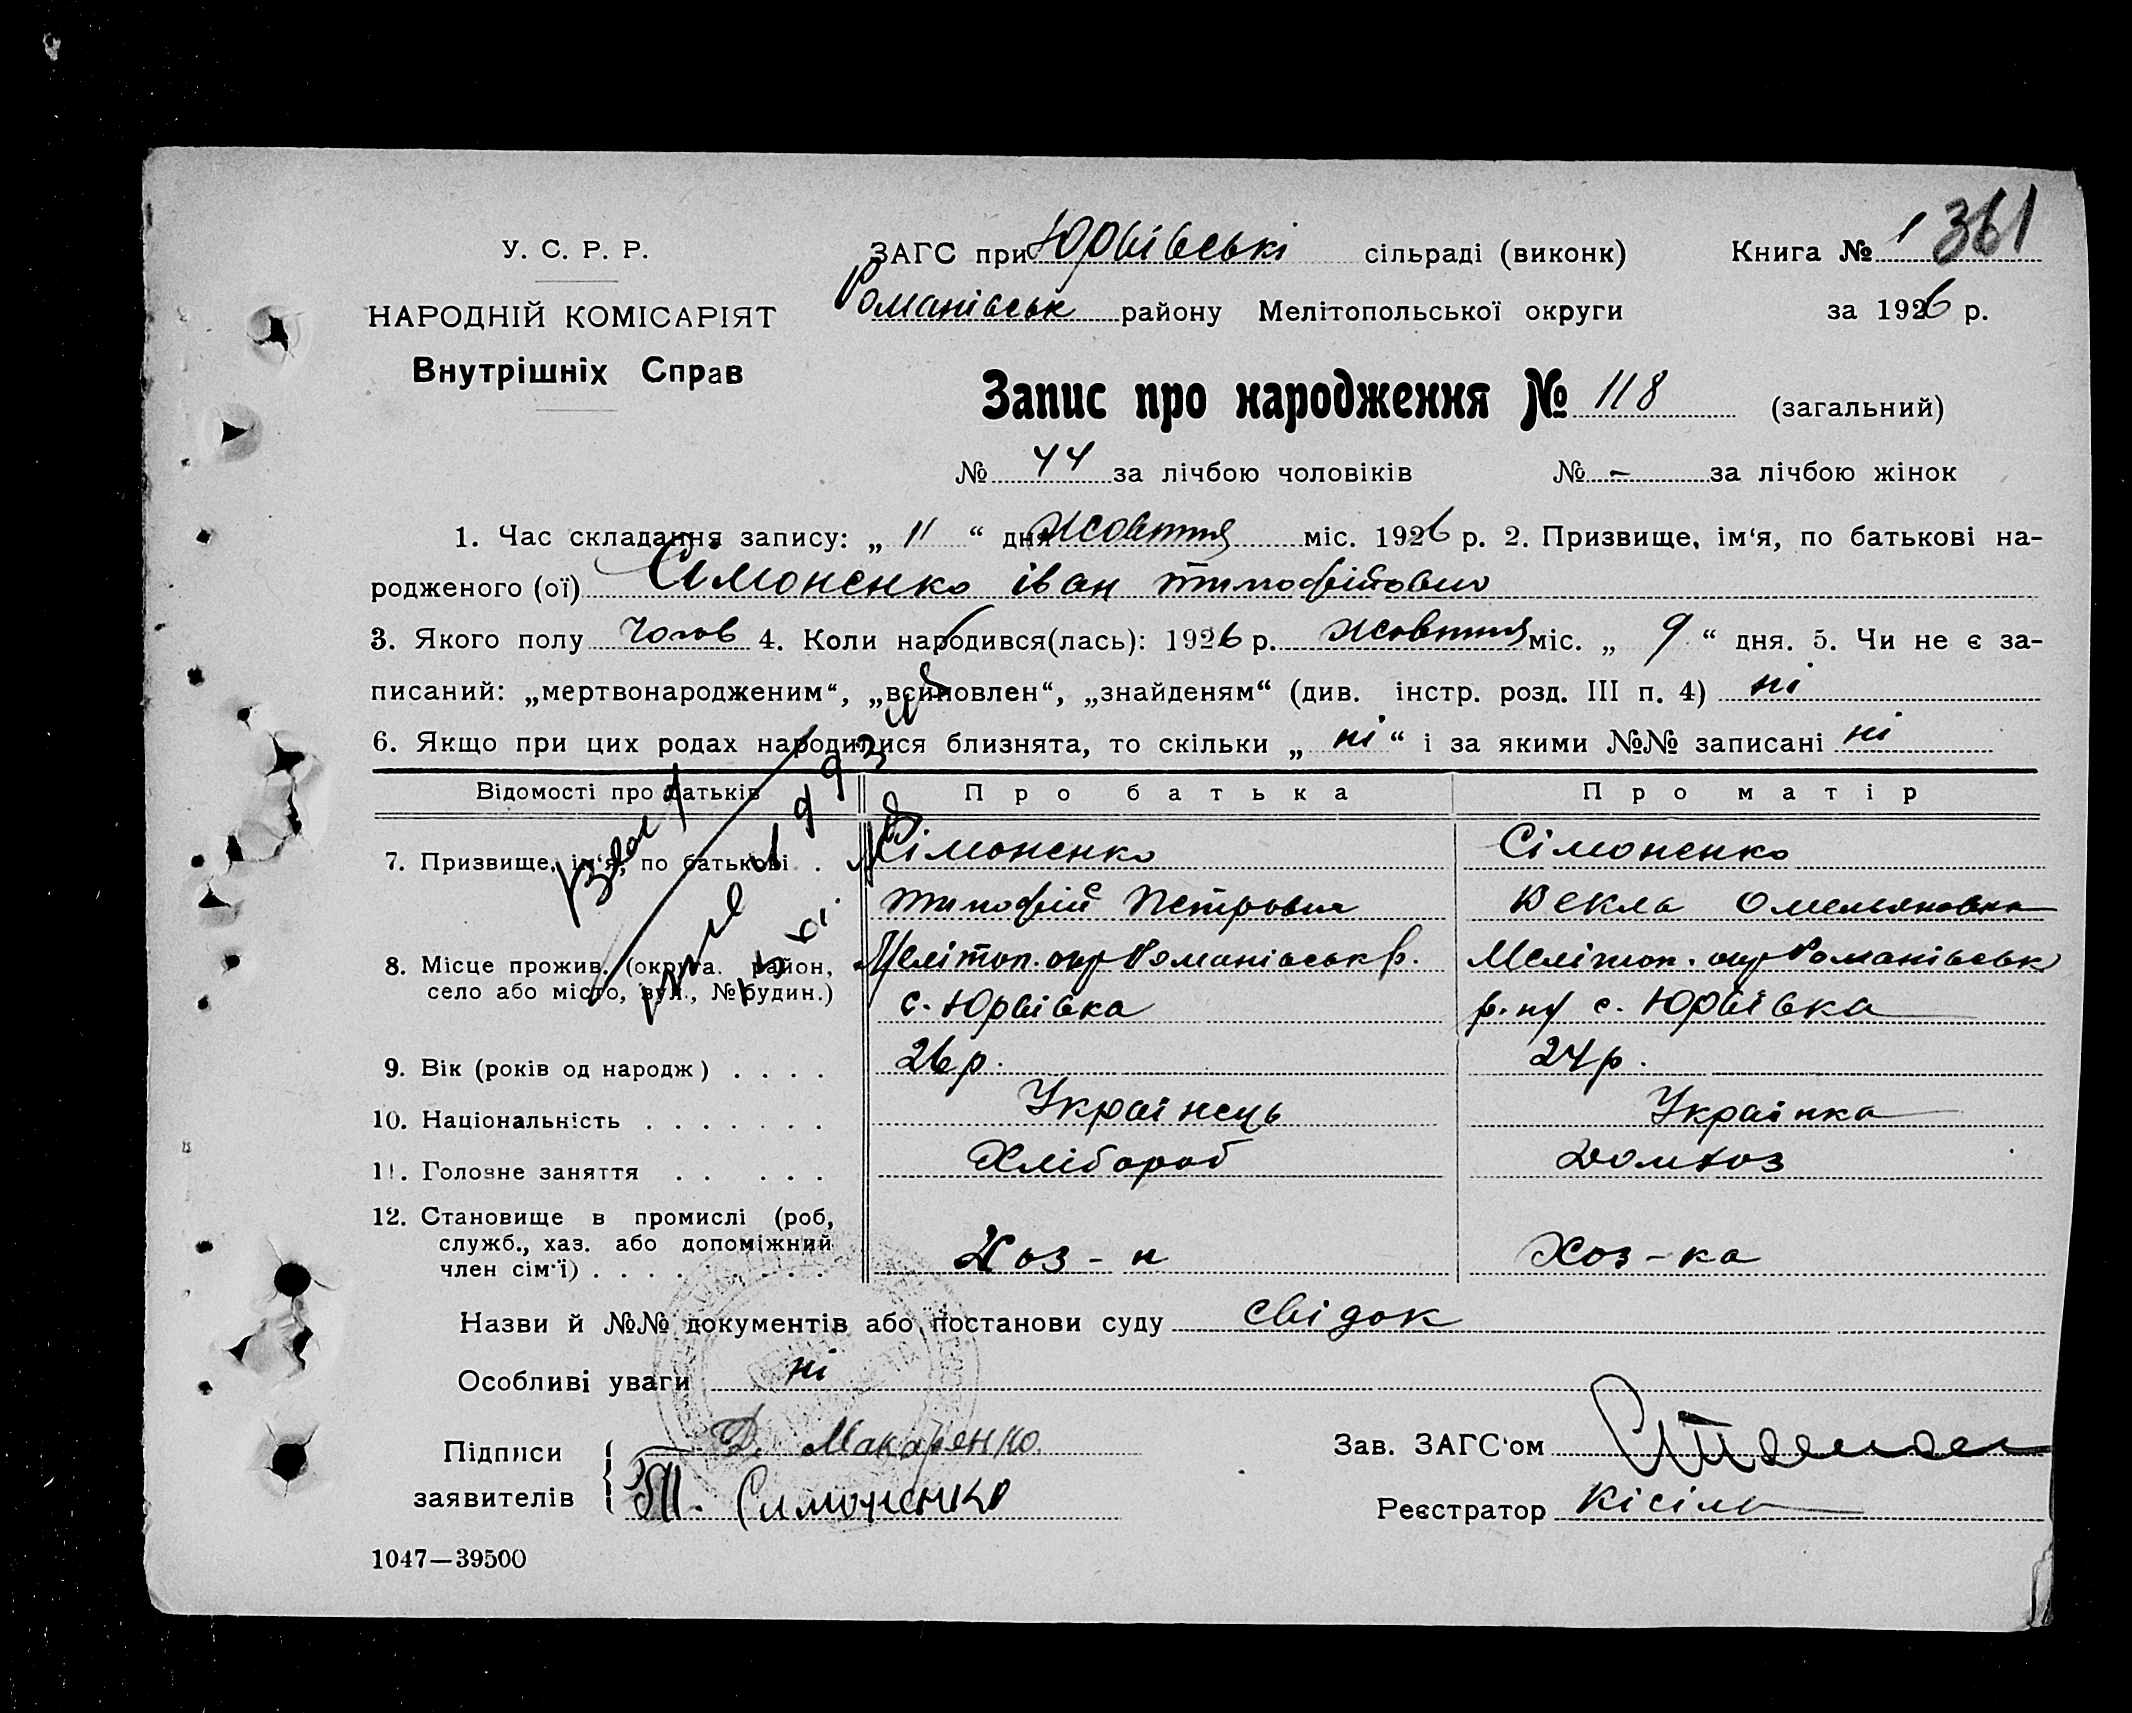 У. С. Р. Р.
НАРОДНІЙ КОМІСАРІЯТ
Внутрішніх Справ
ЗАГС при Юрʼівські сільраді (виконк) Книга № 1 361
Романівськ району Мелітопольської округи за 1926 р.
Запис про народження № 118 (загальний)
№ 44 за лічбою чоловіків № - за лічбою жінок
1. Час складання запису: „ 11 “ дня жовтня міс. 1926 р. 2. Призвище, ім‘я, по батькові на-
родженого (ої) Сімоненко іван тимофійович
3. Якого полу чолов 4. Коли народився(лась): 1926 р. жовтня міс. „ 9 “ дня. 5. Чи не є за-
писаний: „мертвонародженим“, „всиновлен“, „знайденям“ (див. інстр. розд. III п. 4) ні
6. Якщо при цих родах народилися близнята, то скільки „ ні “ і за якими №№ записані ні
Відомості про батьків Про батька Про матір
7. Призвище, ім‘я, по батькові . Сімоненко Сімоненко
тимофій Петрович Векла Омельяновна
8. Місце прожив. (округа. район, Меліток. окр Романівськ р. Мелітоп. окр Романівськ
село або місто, вул., № будин.) с. Юрʼівка р. с. Юрʼівка
9. Вік (років од народж) . . . . 26 р. 24 р.
10. Національність . . . . . . . Украінець Украінка
11. Головне заняття . . . . . Хлібороб домхоз
12. Становище в промислі (роб,
служб., хаз. або допоміжний
член сім'ї) . . . . . . . . . Хоз-н Хоз-ка
Назви й №№ документів або постанови суду свідок
Особливі уваги ні
Підписи Д. Макаренко Зав. ЗАГС‘ом
заявителів Т. Симоненко Реєстратор Кісіль
1047—39500